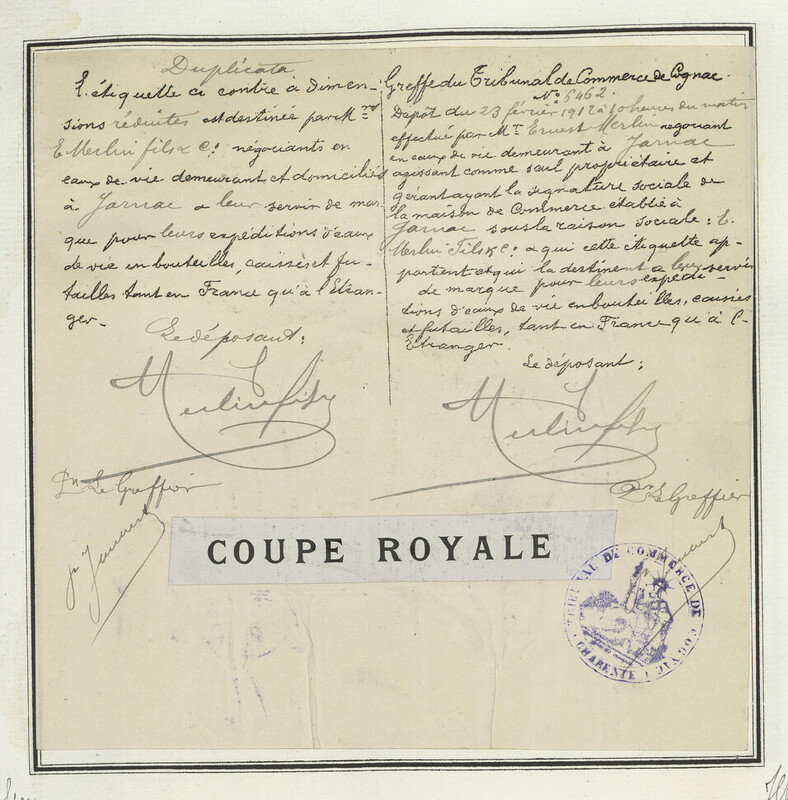 Duplicata
L'étiquette ci contre à Dimen-
sions réduites est destinée par M.rs
E. Merlin fils & C.ie négociants en
eaux de vie demeurant et domiciliés
à Jarnac a leur servir de mar-
que pour leurs expéditions d'eaux
de vie en bouteilles, caisses et fu-
tailles tant en France qu'à l'Etran-
ger.
Le déposant:
Merlin fils
Pr Le Greffier
Greffe du Tribunal de Commerce de Cognac.
N.o 5462.
Dépôt du 23 février 1912 à 10 heures du matin
effectué par M.r Ernest Merlin négociant
en eaux de vie demeurant à Jarnac
agissant comme seul propriétaire et
gérant ayant la signature sociale de
la maison de Commerce établie à
Jarnac sous la raison sociale: E.
Merlin Fils & C.ie a qui cette étiquette ap-
partient et qui la destinent a leur servir
de marque pour leurs expédi-
tions d'eaux de vie en bouteilles, caisses
et futailles, tant en France qu'à l'-
Etranger.
Le déposant:
Merlin fils
Pr Le Greffier
COUPE ROYALE
TRIBUNAL DE COMMERCE DE COGNAC
CHARENTE